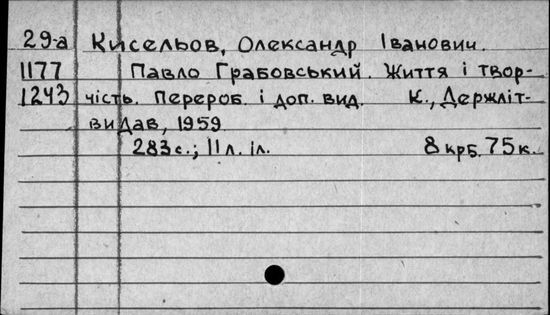 29-а Кисельов, Олександр Іванович.
1177 Павло Грабовський. Життя і твор-
1243 чість. Перероб. і доп. вид. К., Держліт-
видав, 1959
283 с.; 11 л. іл. 8 крб. 75 к.